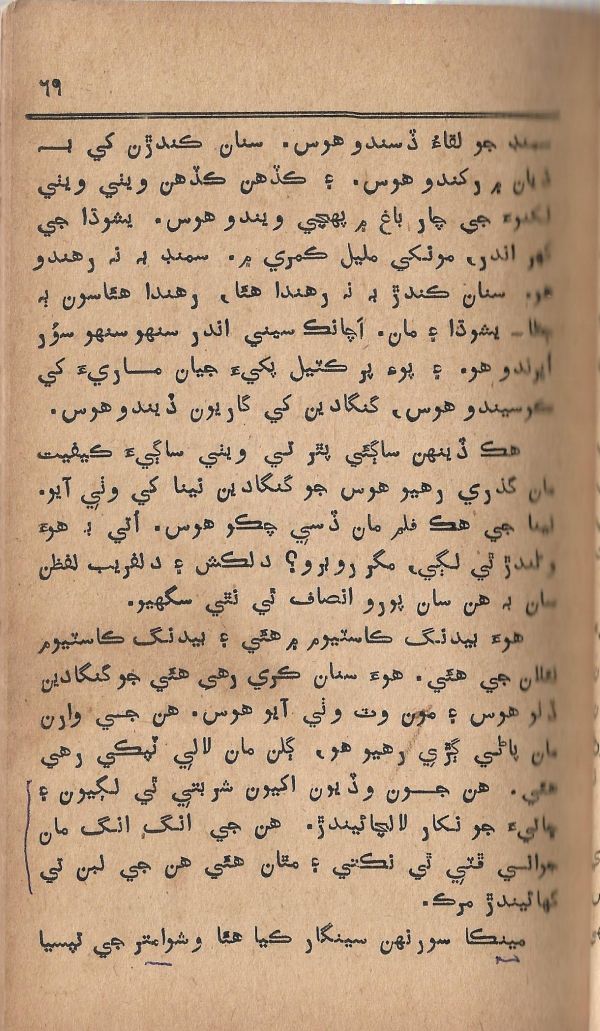 ٦٩
سمنڊ جو لقاءُ ڏسندو هوس. سنان ڪندڙن کي به
ڌيان ۾ رکندو هوس. ۽ ڪڏهن ڪڏهن ويٺي ويٺي
لکنوءَ جي چار باغ ۾ پهچي ويندو هوس. يشوڌا جي
گهر اندر، مونکي مليل ڪمري ۾. سمنڊ به نه رهندو
هو. سنان ڪندڙ به نه رهندا هئا، رهندا هئاسون به
يشوڌا ۽ مان. اَچانڪ سيني اندر سنهو سنهو سوُر
اُڀرندو هو. ۽ پوءِ پر ڪٽيل پکيءَ جيان ماريءَ کي
ڪوسيندو هوس، گنگادين کي گاريون ڏيندو هوس.
هڪ ڏينهن ساڳئي پٿر تي ويٺي ساڳيءَ ڪيفيت
مان گذري رهيو هوس جو گنگادين نينا کي وٺي آيو.
نينا جي هڪ فلم مان ڏسي چڪو هوس. اُتي به هوءَ
وڻندڙ ٿي لڳي، مگر روبرو؟ دلڪش ۽ دلفريب لفظن
سان به هن سان پورو انصاف ٿي نٿي سگهيو.
هوءَ بيدنگ ڪاسٽيوم ۾ هئي ۽ بيدنگ ڪاسٽيوم
نائلان جي هئي. هوءَ سنان ڪري رهي هئي جو گنگادين
ڏٺو هوس ۽ مون وٽ وٺي آيو هوس. هن جي وارن
مان پاڻي ڳڙي رهيو هو، ڳلن مان لالي ٽپڪي رهي
هئي. هن جون وڏيون اکيون شربتي ٿي لڳيون ۽
ڇاتيءَ جو نکار لالچائيندڙ. هن جي انگ انگ مان
جواني ڦٽي ٿي نڪتي ۽ مٿان هئي هن جي لبن تي
گهائيندڙ مرڪ.
مينڪا سورنهن سينگار ڪيا هئا وشوامتر جي تپسيا